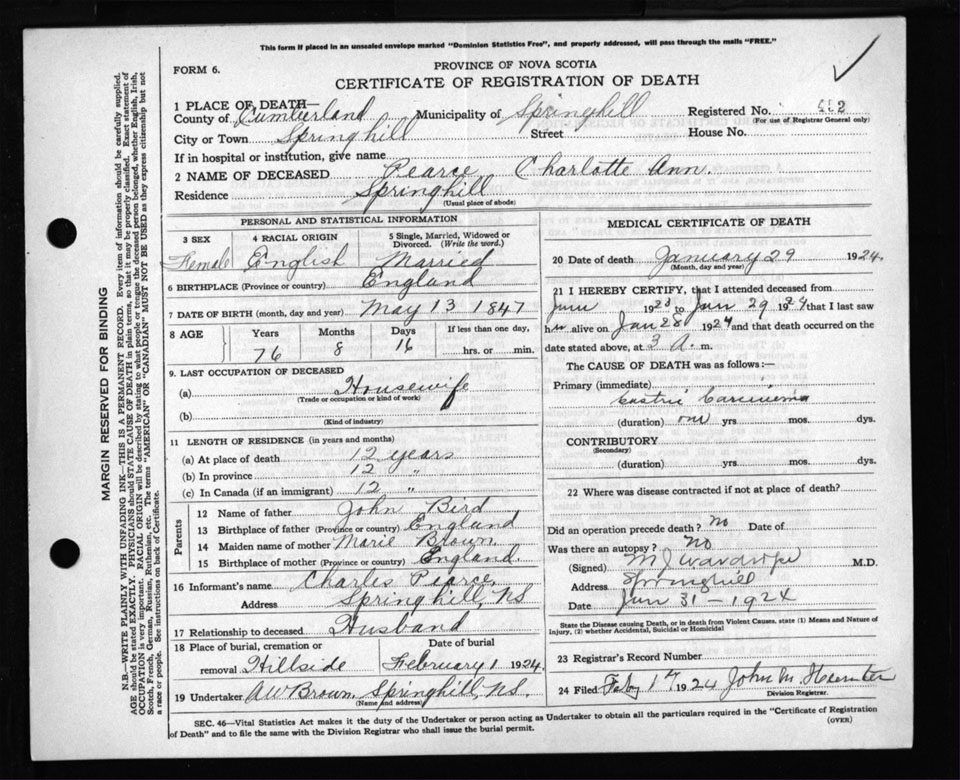 This form if placed in an unsealed envelope marked "Dominion Statistics Free", and properly addressed, will pass through the mails "FREE."
FORM 6.
PROVINCE OF NOVA SCOTIA
CERTIFICATE OF REGISTRATION OF DEATH
1 PLACE OF DEATH—
County of Cumberland Municipality of Springhill Registered No. 482
(For use of Registrar General only)
City or Town Springhill Street House No.
If in hospital or institution, give name
2 NAME OF DECEASED Pearce Charlotte Ann.
Residence Springhill
(Usual place of abode)
PERSONAL AND STATISTICAL INFORMATION
3 SEX Female
4 RACIAL ORIGIN English
5 Single, Married, Widowed or Divorced. (Write the word.) Married
6 BIRTHPLACE (Province or country) England
7 DATE OF BIRTH (month, day and year) May 13 1847
8 AGE Years 76 Months 8 Days 16 If less than one day, hrs. or min.
9. LAST OCCUPATION OF DECEASED
(a) Housewife
(Trade or occupation or kind of work)
(b)
(Kind of industry)
11 LENGTH OF RESIDENCE (in years and months)
(a) At place of death 12 years
(b) In province 12 "
(c) In Canada (if an immigrant) 12 "
Parents
12 Name of father John Bird
13 Birthplace of father (Province or country) England
14 Maiden name of mother Marie Brown
15 Birthplace of mother (Province or country) England
16 Informant's name Charles Pearce
Address Springhill, NS
17 Relationship to deceased Husband
18 Place of burial, cremation or removal Hillside Date of burial February 1 1924.
19 Undertaker AW Brown Springhill, NS.
(Name and address)
MEDICAL CERTIFICATE OF DEATH
20 Date of death January 29 1924.
(Month, day and year)
21 I HEREBY CERTIFY, that I attended deceased from
June 1923 to Jan 29 1924 that I last saw
her alive on Jan 28 1924 and that death occurred on the
date stated above, at 3 A. m.
The CAUSE OF DEATH was as follows:—
Primary (immediate)
Gastric Carcinoma
(duration) one yrs mos. dys.
CONTRIBUTORY
(Secondary)
(duration) yrs mos. dys.
22 Where was disease contracted if not at place of death?
Did an operation precede death? No Date of
Was there an autopsy? No
(Signed) M.D.
Address Springhill
Date Jan 31 - 1924
State the Disease causing Death, or in death from Violent Causes, state (1) Means and Nature of Injury, (2) whether Accidental, Suicidal or Homicidal
23 Registrar's Record Number
24 Filed Feby 1st 1924 John M. Hunter
Division Registrar.
SEC. 46—Vital Statistics Act makes it the duty of the Undertaker or person acting as Undertaker to obtain all the particulars required in the "Certificate of Registration of Death" and to file the same with the Division Registrar who shall issue the burial permit.
(OVER)
MARGIN RESERVED FOR BINDING
N.B.—WRITE PLAINLY WITH UNFADING INK—THIS IS A PERMANENT RECORD. Every item of information should be carefully supplied.
AGE should be stated EXACTLY. PHYSICIANS should STATE CAUSE OF DEATH in plain terms, so that it may be properly classified. Exact statement of
OCCUPATION is very important. RACIAL ORIGIN will be described by stating to what people or tongue the deceased person belonged, whether English, Irish,
Scotch, French, German, Russian, Ruthenian, etc. The terms "AMERICAN" OR "CANADIAN" MUST NOT BE USED as they express citizenship but not
a race or people. See instructions on back of Certificate.